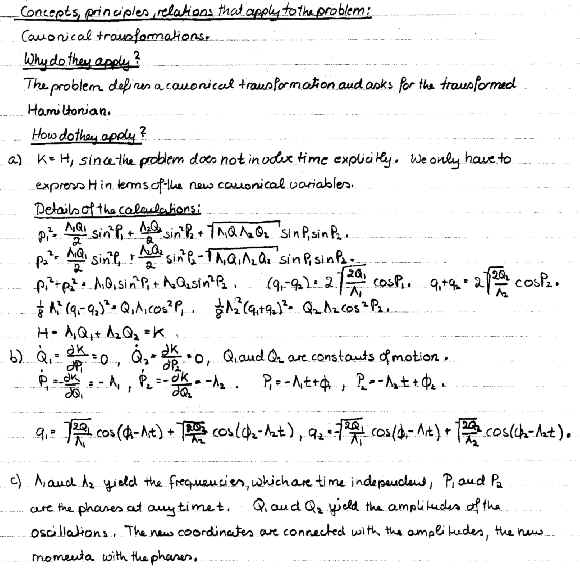 Concepts, principles, relations that apply to the problem:
Canonical transformations.
Why do they apply?
The problem defines a canonical transformation and asks for the transformed
Hamiltonian.
How do they apply?
a) K = H, since the problem does not involve time explicitly. We only have to
express H in terms of the new canonical variables.
Details of the calculations:
p₁² = Λ₁Q₁/2 sin²P₁ + Λ₂Q₂/2 sin²P₂ + √(Λ₁Q₁Λ₂Q₂) sinP₁ sinP₂.
p₂² = Λ₁Q₁/2 sin²P₁ + Λ₂Q₂/2 sin²P₂ - √(Λ₁Q₁Λ₂Q₂) sinP₁ sinP₂.
p₁² + p₂² = Λ₁Q₁ sin²P₁ + Λ₂Q₂ sin²P₂. (q₁-q₂) = 2√(2Q₁/Λ₁) cosP₁. q₁+q₂ = 2√(2Q₂/Λ₂) cosP₂.
⅛Λ₁²(q₁-q₂)² = Q₁Λ₁cos²P₁. ⅛Λ₂²(q₁+q₂)² = Q₂Λ₂cos²P₂.
H = Λ₁Q₁ + Λ₂Q₂ = K.
b) Q̇₁ = ∂K/∂P₁ = 0, Q̇₂ = ∂K/∂P₂ = 0, Q₁ and Q₂ are constants of motion.
Ṗ₁ = -∂K/∂Q₁ = -Λ₁, Ṗ₂ = -∂K/∂Q₂ = -Λ₂. P₁ = -Λ₁t+ϕ₁, P₂ = -Λ₂t+ϕ₂.
q₁ = √(2Q₁/Λ₁) cos(ϕ₁-Λ₁t) + √(2Q₂/Λ₂) cos(ϕ₂-Λ₂t), q₂ = -√(2Q₁/Λ₁) cos(ϕ₁-Λ₁t) + √(2Q₂/Λ₂) cos(ϕ₂-Λ₂t).
c) Λ₁ and Λ₂ yield the frequencies, which are time independent, P₁ and P₂
are the phases at any time t. Q₁ and Q₂ yield the amplitudes of the
oscillations. The new coordinates are connected with the amplitudes, the new
momenta with the phases.